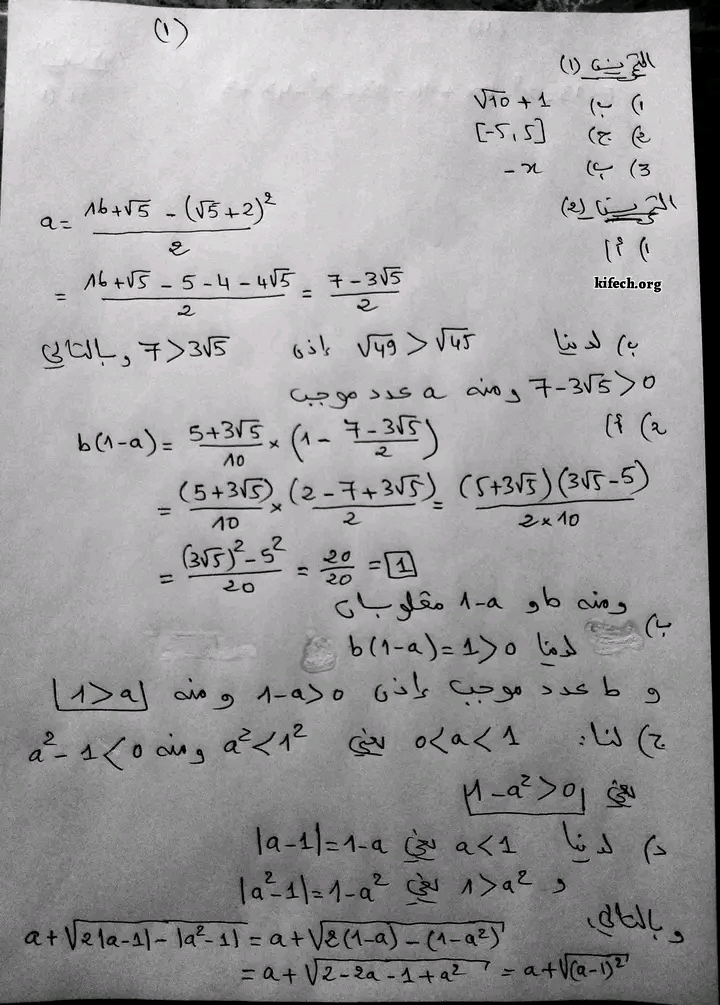 (1)
التمرين (1)
1) ب) √10 + 1
2) ج) [-5, 5]
3) ب) -x
التمرين (2)
1) أ) a = (16+√5 - (√5+2)²)/2
kifech.org
= (16+√5 - 5 - 4 - 4√5)/2 = (7 - 3√5)/2
ب) لدينا √49 > √45 إذن 7 > 3√5 وبالتالي
7 - 3√5 > 0 ومنه a عدد موجب
2) أ) b(1-a) = (5+3√5)/10 × (1 - (7-3√5)/2)
= (5+3√5)/10 × (2-7+3√5)/2 = (5+3√5)(3√5-5)/(2×10)
= ((3√5)² - 5²)/20 = 20/20 = 1
ومنه b و 1-a مقلوبان
ب)
لدينا b(1-a) = 1 > 0
و b عدد موجب إذن 1-a>0 ومنه 1>a
ج) لنا: 0<a<1 يعني a² < 1² ومنه a² - 1 < 0
يعني 1-a² > 0
د) لدينا a<1 يعني |a-1| = 1-a
و 1>a² يعني |a²-1| = 1-a²
وبالتالي
a + √(2|a-1| - |a²-1|) = a + √(2(1-a) - (1-a²))
= a + √(2-2a-1+a²) = a + √((a-1)²)